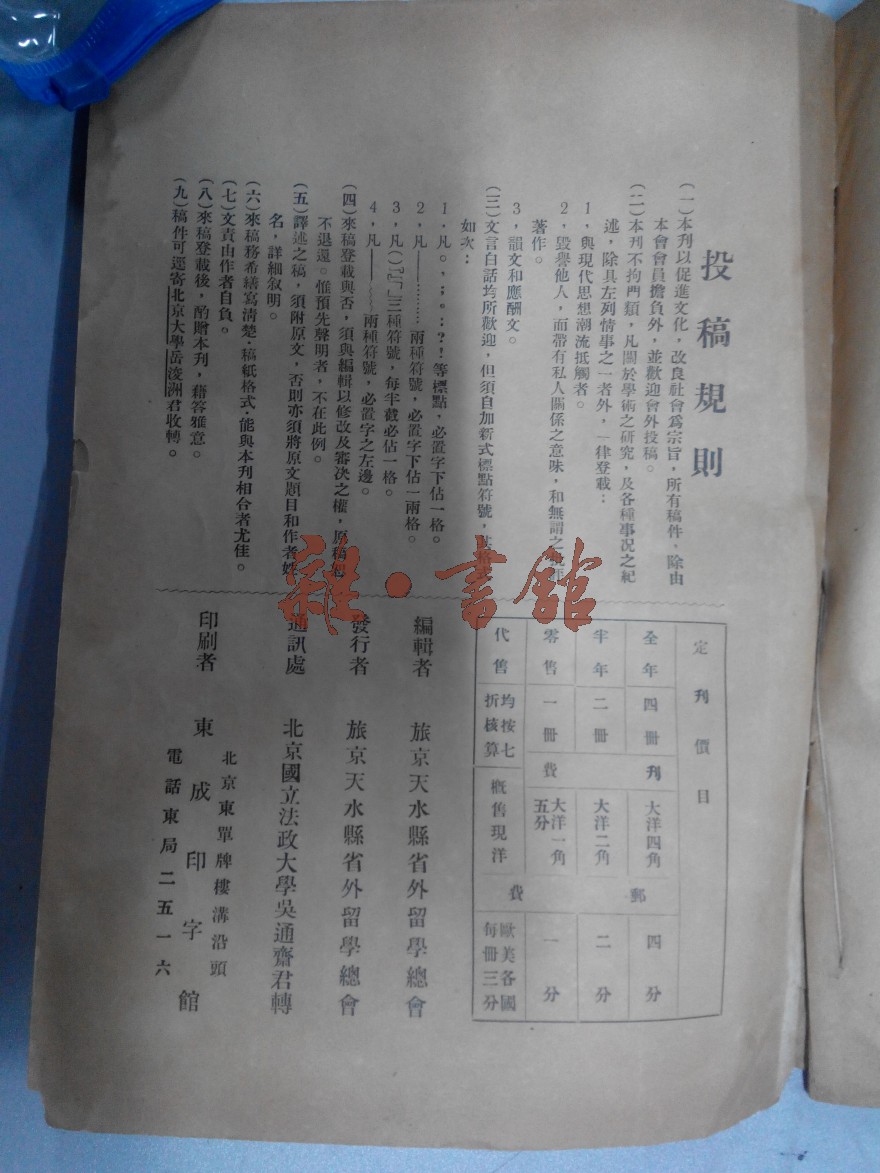 投稿規則
(一)本刊以促進文化，改良社會爲宗旨，所有稿件，除由
本會會員擔負外，並歡迎會外投稿。
(二)本刊不拘門類，凡關於學術之研究，及各種事況之紀
述，除具左列情事之一者外，一律登載：
1，與現代思想潮流抵觸者。
2，毀譽他人，而帶有私人關係之意味，和無謂之批評
著作。
3，韻文和應酬文。
(三)文言白話均所歡迎，但須自加新式標點符號，其格式
如次：
1，凡。，；。：？！等標點，必置字下佔一格。
2，凡——………兩種符號，必置字下佔一兩格。
3，凡()『』「」三種符號，每半截必佔一格。
4，凡——﹏﹏兩種符號，必置字之左邊。
(四)來稿登載與否，須與編輯以修改及審決之權，原稿
不退還。惟預先聲明者，不在此例。
(五)譯述之稿，須附原文，否則亦須將原文題目和作者姓
名，詳細叙明。
(六)來稿務希繕寫清楚．稿紙格式．能與本刊相合者尤佳。
(七)文責由作者自負。
(八)來稿登載後，酌贈本刊，藉答雅意。
(九)稿件可逕寄北京大學岳浚洲君收轉。
定刊價目
全年 四冊 刊費 大洋四角 郵費 四分
半年 二冊 大洋二角 二分
零售 一冊 大洋一角五分 一分
代售 均按七折核算 概售現洋 歐美各國每冊三分
編輯者 旅京天水縣省外留學總會
發行者 旅京天水縣省外留學總會
通訊處 北京國立法政大學吳通齋君轉
印刷者 東成印字館
北京東單牌樓溝沿頭
電話東局二五一六
雜·書館